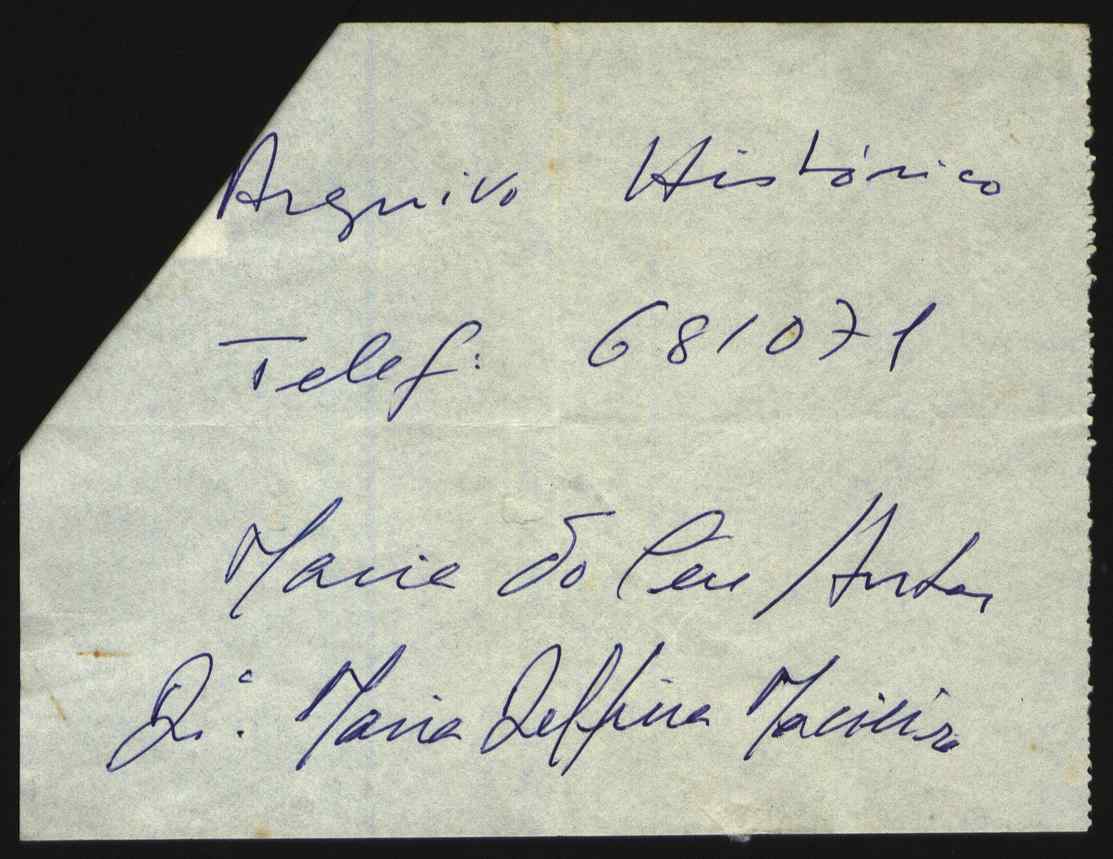 Arquivo Histórico
Telef: 681071
Maria do Céu Antas
D.ª Maria Delfina Macieira